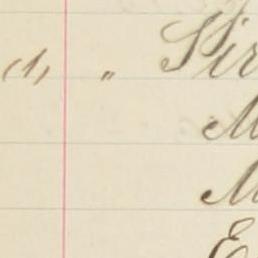 " Sir
M
M
E